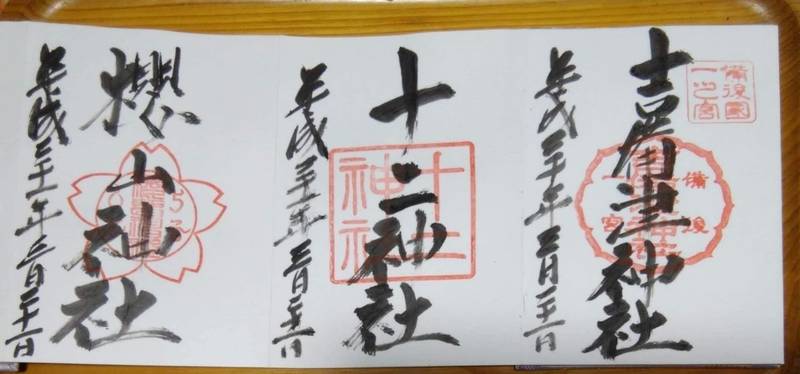 備後國
一之宮
吉備津神社
備後
一宮
平成 年三月二十一日
十二神社
十二
神社
平成 年三月二十一日
櫻山神社
平成 年三月二十一日